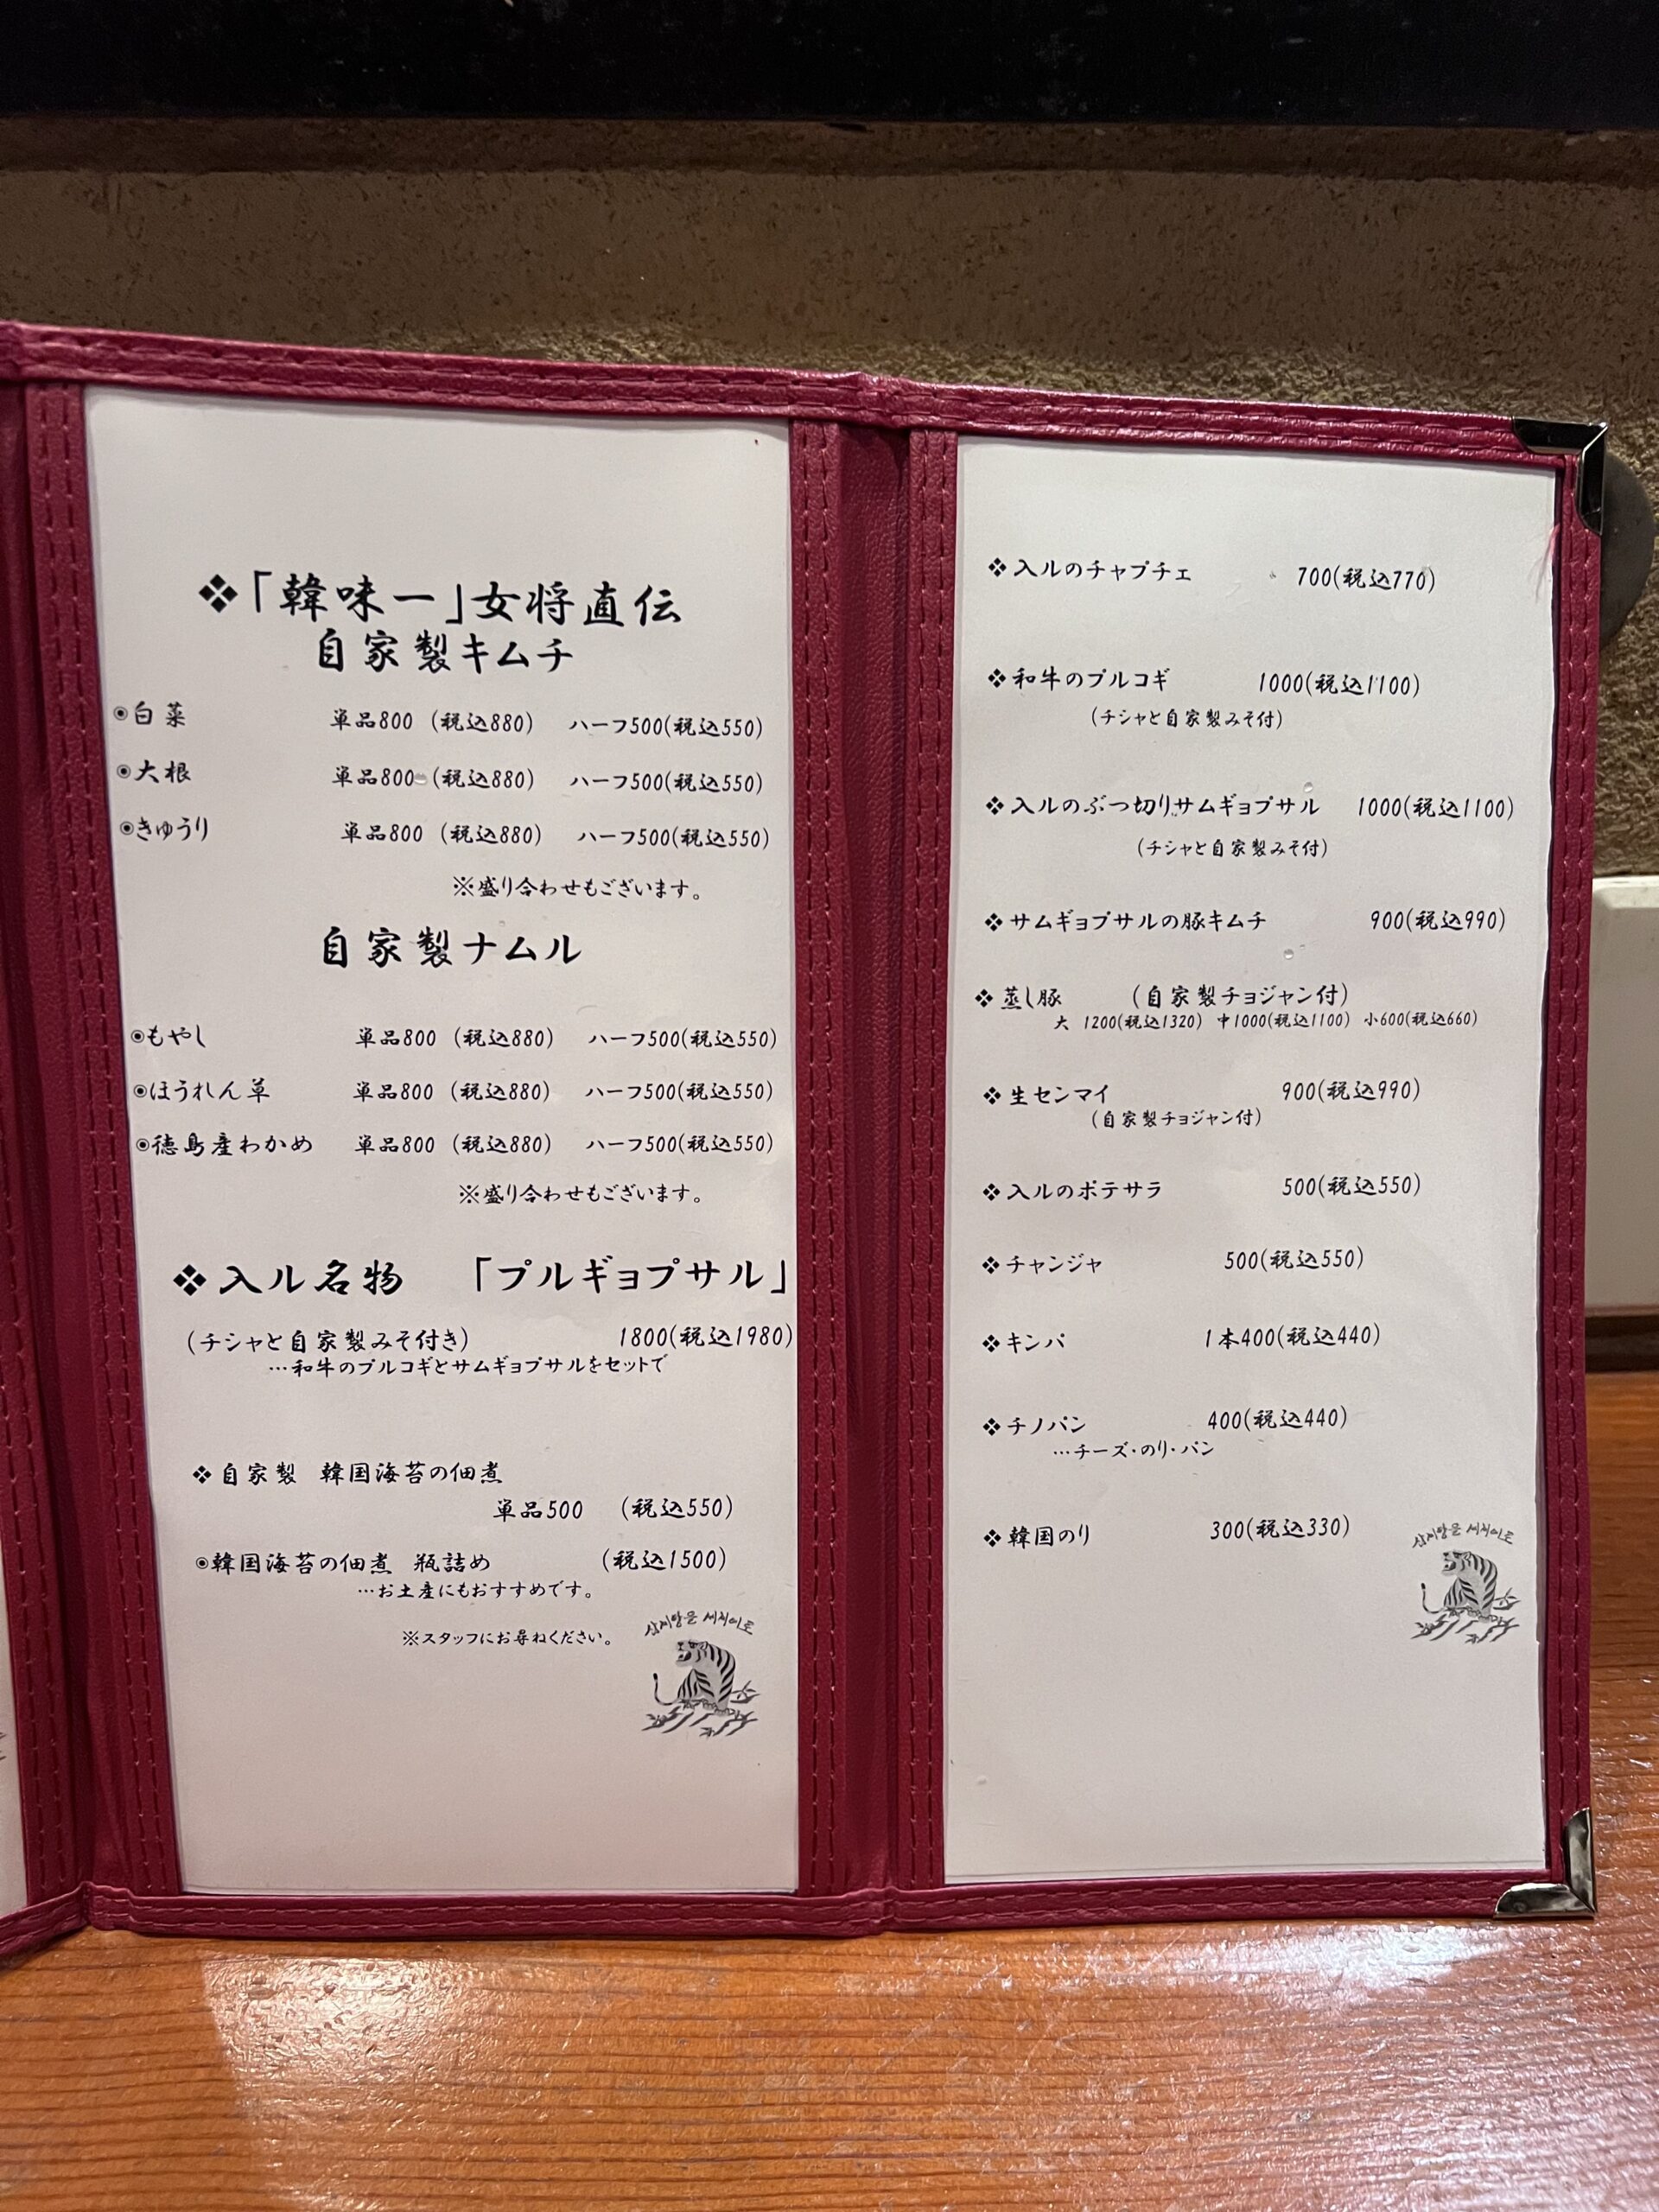 ❖「韓味一」女将直伝
自家製キムチ
◉白菜 単品800 (税込880) ハーフ500(税込550)
◉大根 単品800 (税込880) ハーフ500(税込550)
◉きゅうり 単品800 (税込880) ハーフ500(税込550)
※盛り合わせもございます。
自家製ナムル
◉もやし 単品800 (税込880) ハーフ500(税込550)
◉ほうれん草 単品800 (税込880) ハーフ500(税込550)
◉徳島産わかめ 単品800 (税込880) ハーフ500(税込550)
※盛り合わせもございます。
❖入ル名物 「プルギョプサル」
(チシャと自家製みそ付き) 1800(税込1980)
…和牛のプルコギとサムギョプサルをセットで
❖自家製 韓国海苔の佃煮
単品500 (税込550)
◉韓国海苔の佃煮 瓶詰め (税込1500)
…お土産にもおすすめです。
※スタッフにお尋ねください。
❖入ルのチャプチェ 700(税込770)
❖和牛のプルコギ 1000(税込1100)
(チシャと自家製みそ付)
❖入ルのぶつ切りサムギョプサル 1000(税込1100)
(チシャと自家製みそ付)
❖サムギョプサルの豚キムチ 900(税込990)
❖蒸し豚 (自家製チョジャン付)
大 1200(税込1320) 中1000(税込1100) 小600(税込660)
❖生センマイ 900(税込990)
(自家製チョジャン付)
❖入ルのポテサラ 500(税込550)
❖チャンジャ 500(税込550)
❖キンパ 1本400(税込440)
❖チノパン 400(税込440)
…チーズ・のり・パン
❖韓国のり 300(税込330)